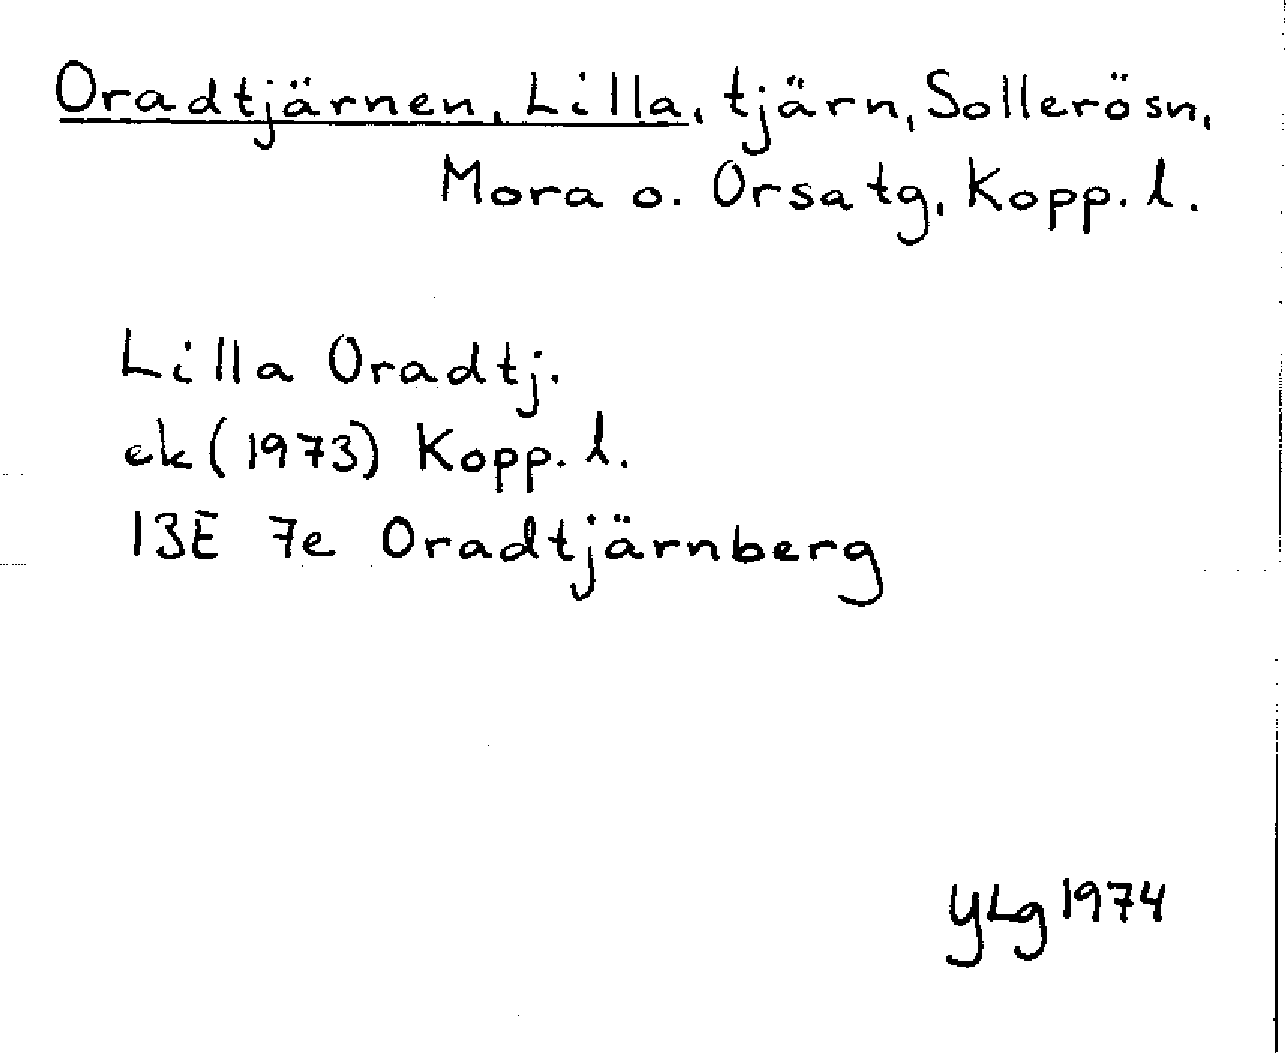 Oradtjärnen, Lilla, tjärn, Sollerösn,
Mora o. Orsa tg, Kopp. l.
Lilla Oradtj.
ek (1973) Kopp. l.
13E 7e Oradtjärnberg
YLg 1974